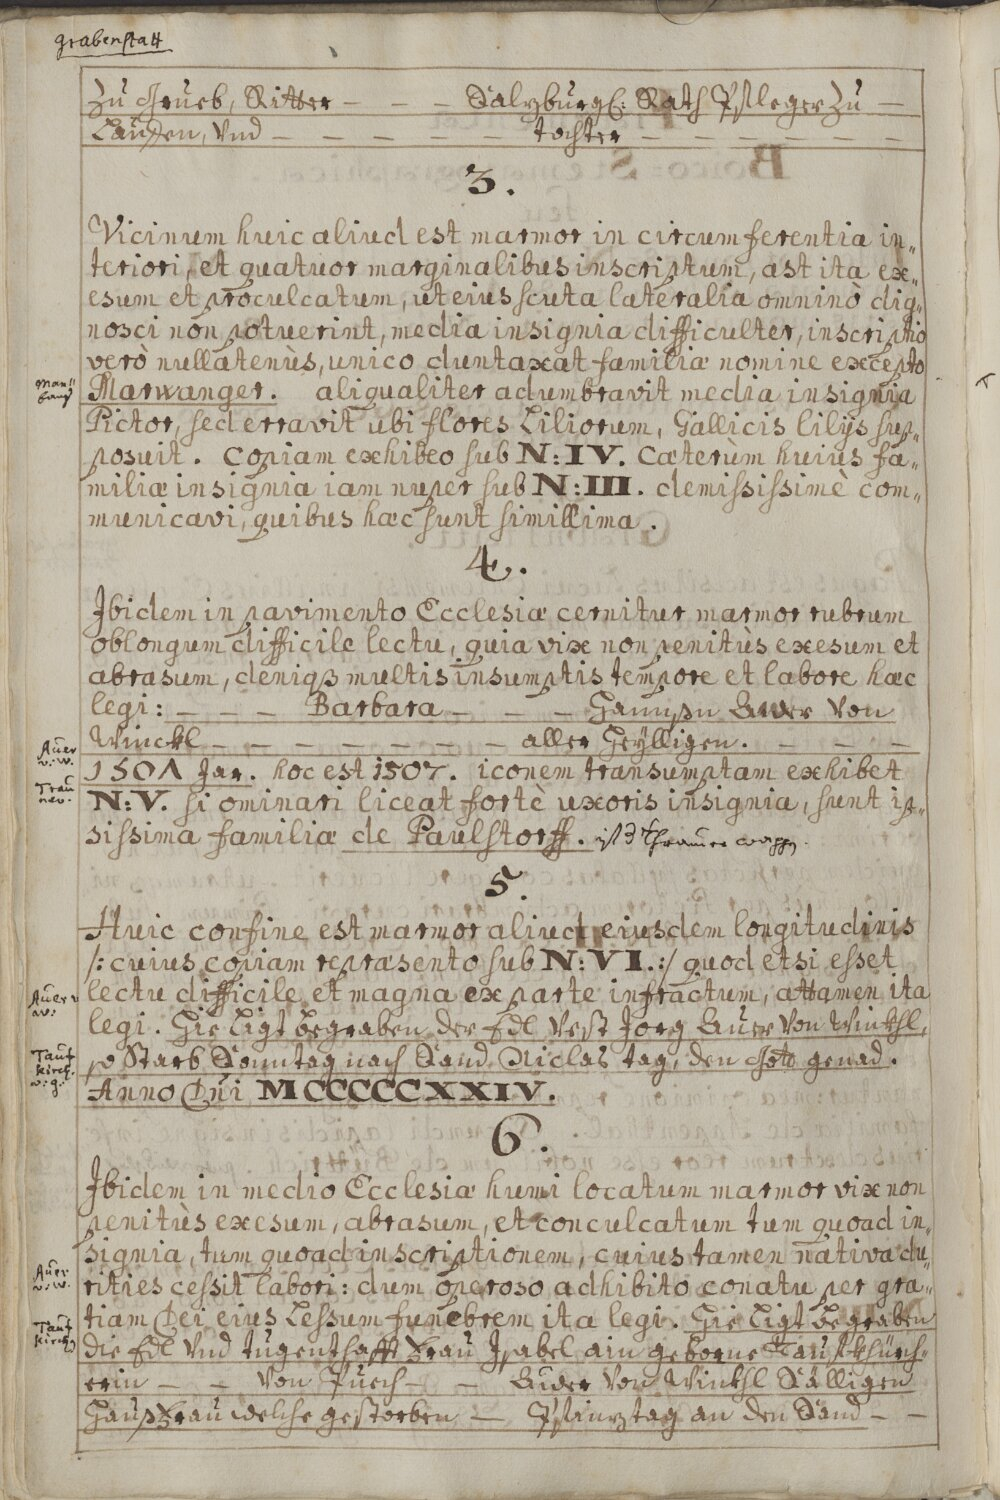 grabenstatt
Zu Grueb, Ritter – – – Salzburgl: Rath Pfleger Zu –
Lauffen, Vnd – – – – – – tochter – – – – – –
3.
Vicinum huic aliud est marmor in circumferentia in„
teriori, et quatuor marginalibus inscriptum, ast ita ex„
esum et proculcatum, ut eius scuta lateralia omninò dig„
nosci non potuerint, media insignia difficulter, inscriptio
verò nullatenùs, unico duntaxat familiæ nomine excepto
Marwanger. aliqualiter adumbravit media insignia
Pictor, sed erravit ubi flores Liliorum, Gallicis lilijs sup„
posuit. Copiam exhibeo sub N: IV. Cæterùm huius fa„
miliæ insignia iam nuper sub N: III. demississimè com„
municavi, quibus hæc sunt simillima.
4.
Ibidem in pavimento Ecclesiæ cernitur marmor rubrum
oblongum difficile lectu, quia vix non penitùs exesum et
abrasum, deniqз multis insumptis tempore et labore hæc
legi: – – – Barbara – – – Hannsn Auer Von
Winckl – – – – – – – aller Heylligen. – – –
Auer
v: w.
1501 Jar. hoc est 1507. iconem transumptam exhibet
Trau
ner.
N: V. si ominari liceat fortè uxoris insignia, sunt ip„
sissima familiæ de Paulstorff. ist Thrauner wappn.
5.
Huic confine est marmor aliud eiusdem longitudinis
/: cuius copiam repræsento sub N: VI. :/ quod etsi esset
lectu difficile et magna ex parte infractum, attamen ita
Auer v
w:
legi. Hie Ligt Begraben der Edl Vest Jorg Auer Von Winkhl,
so Starb Sonntag nach Sand Niclas tag, den Gott genad.
Tauf
kirch.
v: g:
Anno Dni MCCCCCXXIV.
6.
Ibidem in medio Ecclesiæ humi locatum marmor vix non
penitùs exesum, abrasum, et conculcatum tum quoad in„
signia, tum quoad inscriptionem, cuius tamen nativa du„
Auer
v: w.
rities cessit labori: dum operoso adhibito conatu per gra„
tiam Dei eius Lessum funebrem ita legi. Hie Ligt Begraben
Tauf
kirch
die Edl Vnd tugenthafft Frau Isabel ain geborne Taufkhürch„
erin – – Von Puech – – Auer Von Winkhl Sälligen
Hausfrau welche gestorben – Pfinztag an den Sand – –